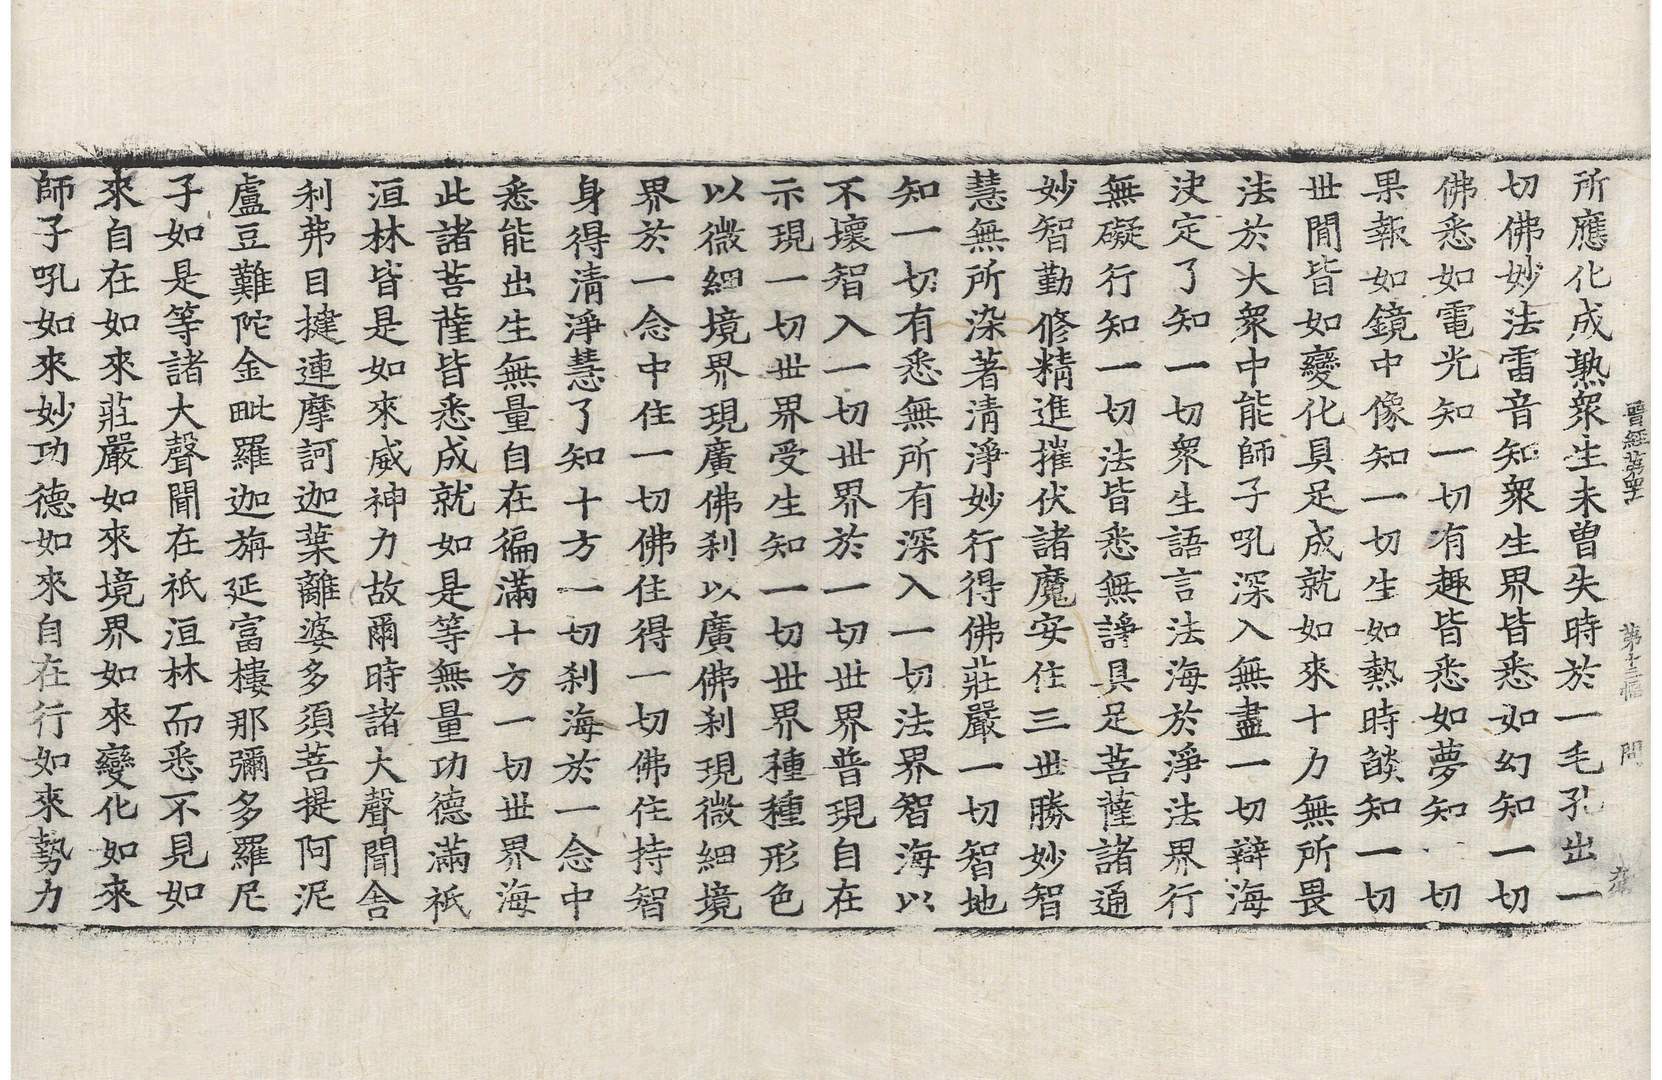 晉經第四十 第十三幅 問
所應化成熟衆生未曽失時於一毛孔出一
切佛妙法雷音知衆生界皆悉如幻知一切
佛悉如電光知一切有趣皆悉如夢知一切
果報如鏡中像知一切生如熱時燄知一切
世閒皆如變化具足成就如來十力無所畏
法於大衆中能師子吼深入無盡一切辯海
決定了知一切衆生語言法海於淨法界行
無礙行知一切法皆悉無諍具足菩薩諸通
妙智勤修精進摧伏諸魔安住三世勝妙智
慧無所染著淸淨妙行得佛莊嚴一切智地
知一切有悉無所有深入一切法界智海以
不壞智入一切世界於一切世界普現自在
示現一切世界受生知一切世界種種形色
以微細境界現廣佛刹以廣佛刹現微細境
界於一念中住一切佛住得一切佛住持智
身得淸淨慧了知十方一切刹海於一念中
悉能出生無量自在徧滿十方一切世界海
此諸菩薩皆悉成就如是等無量功德滿祇
洹林皆是如來威神力故爾時諸大聲聞舎
利弗目揵連摩訶迦葉離婆多須菩提阿泥
盧豆難陀金毗羅迦旃延富樓那彌多羅尼
子如是等諸大聲聞在祇洹林而悉不見如
來自在如來莊嚴如來境界如來變化如來
師子吼如來妙功德如來自在行如來勢力